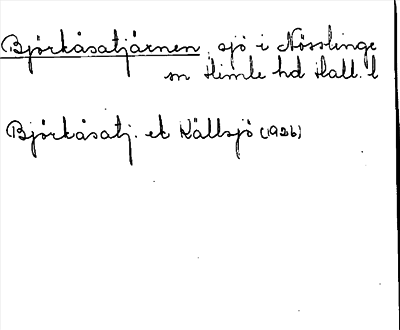 Björkåsatjärnen, sjö i Nösslinge
sn Himle hd Hall. l
Björkåsatj. ek Källsjö (1926)